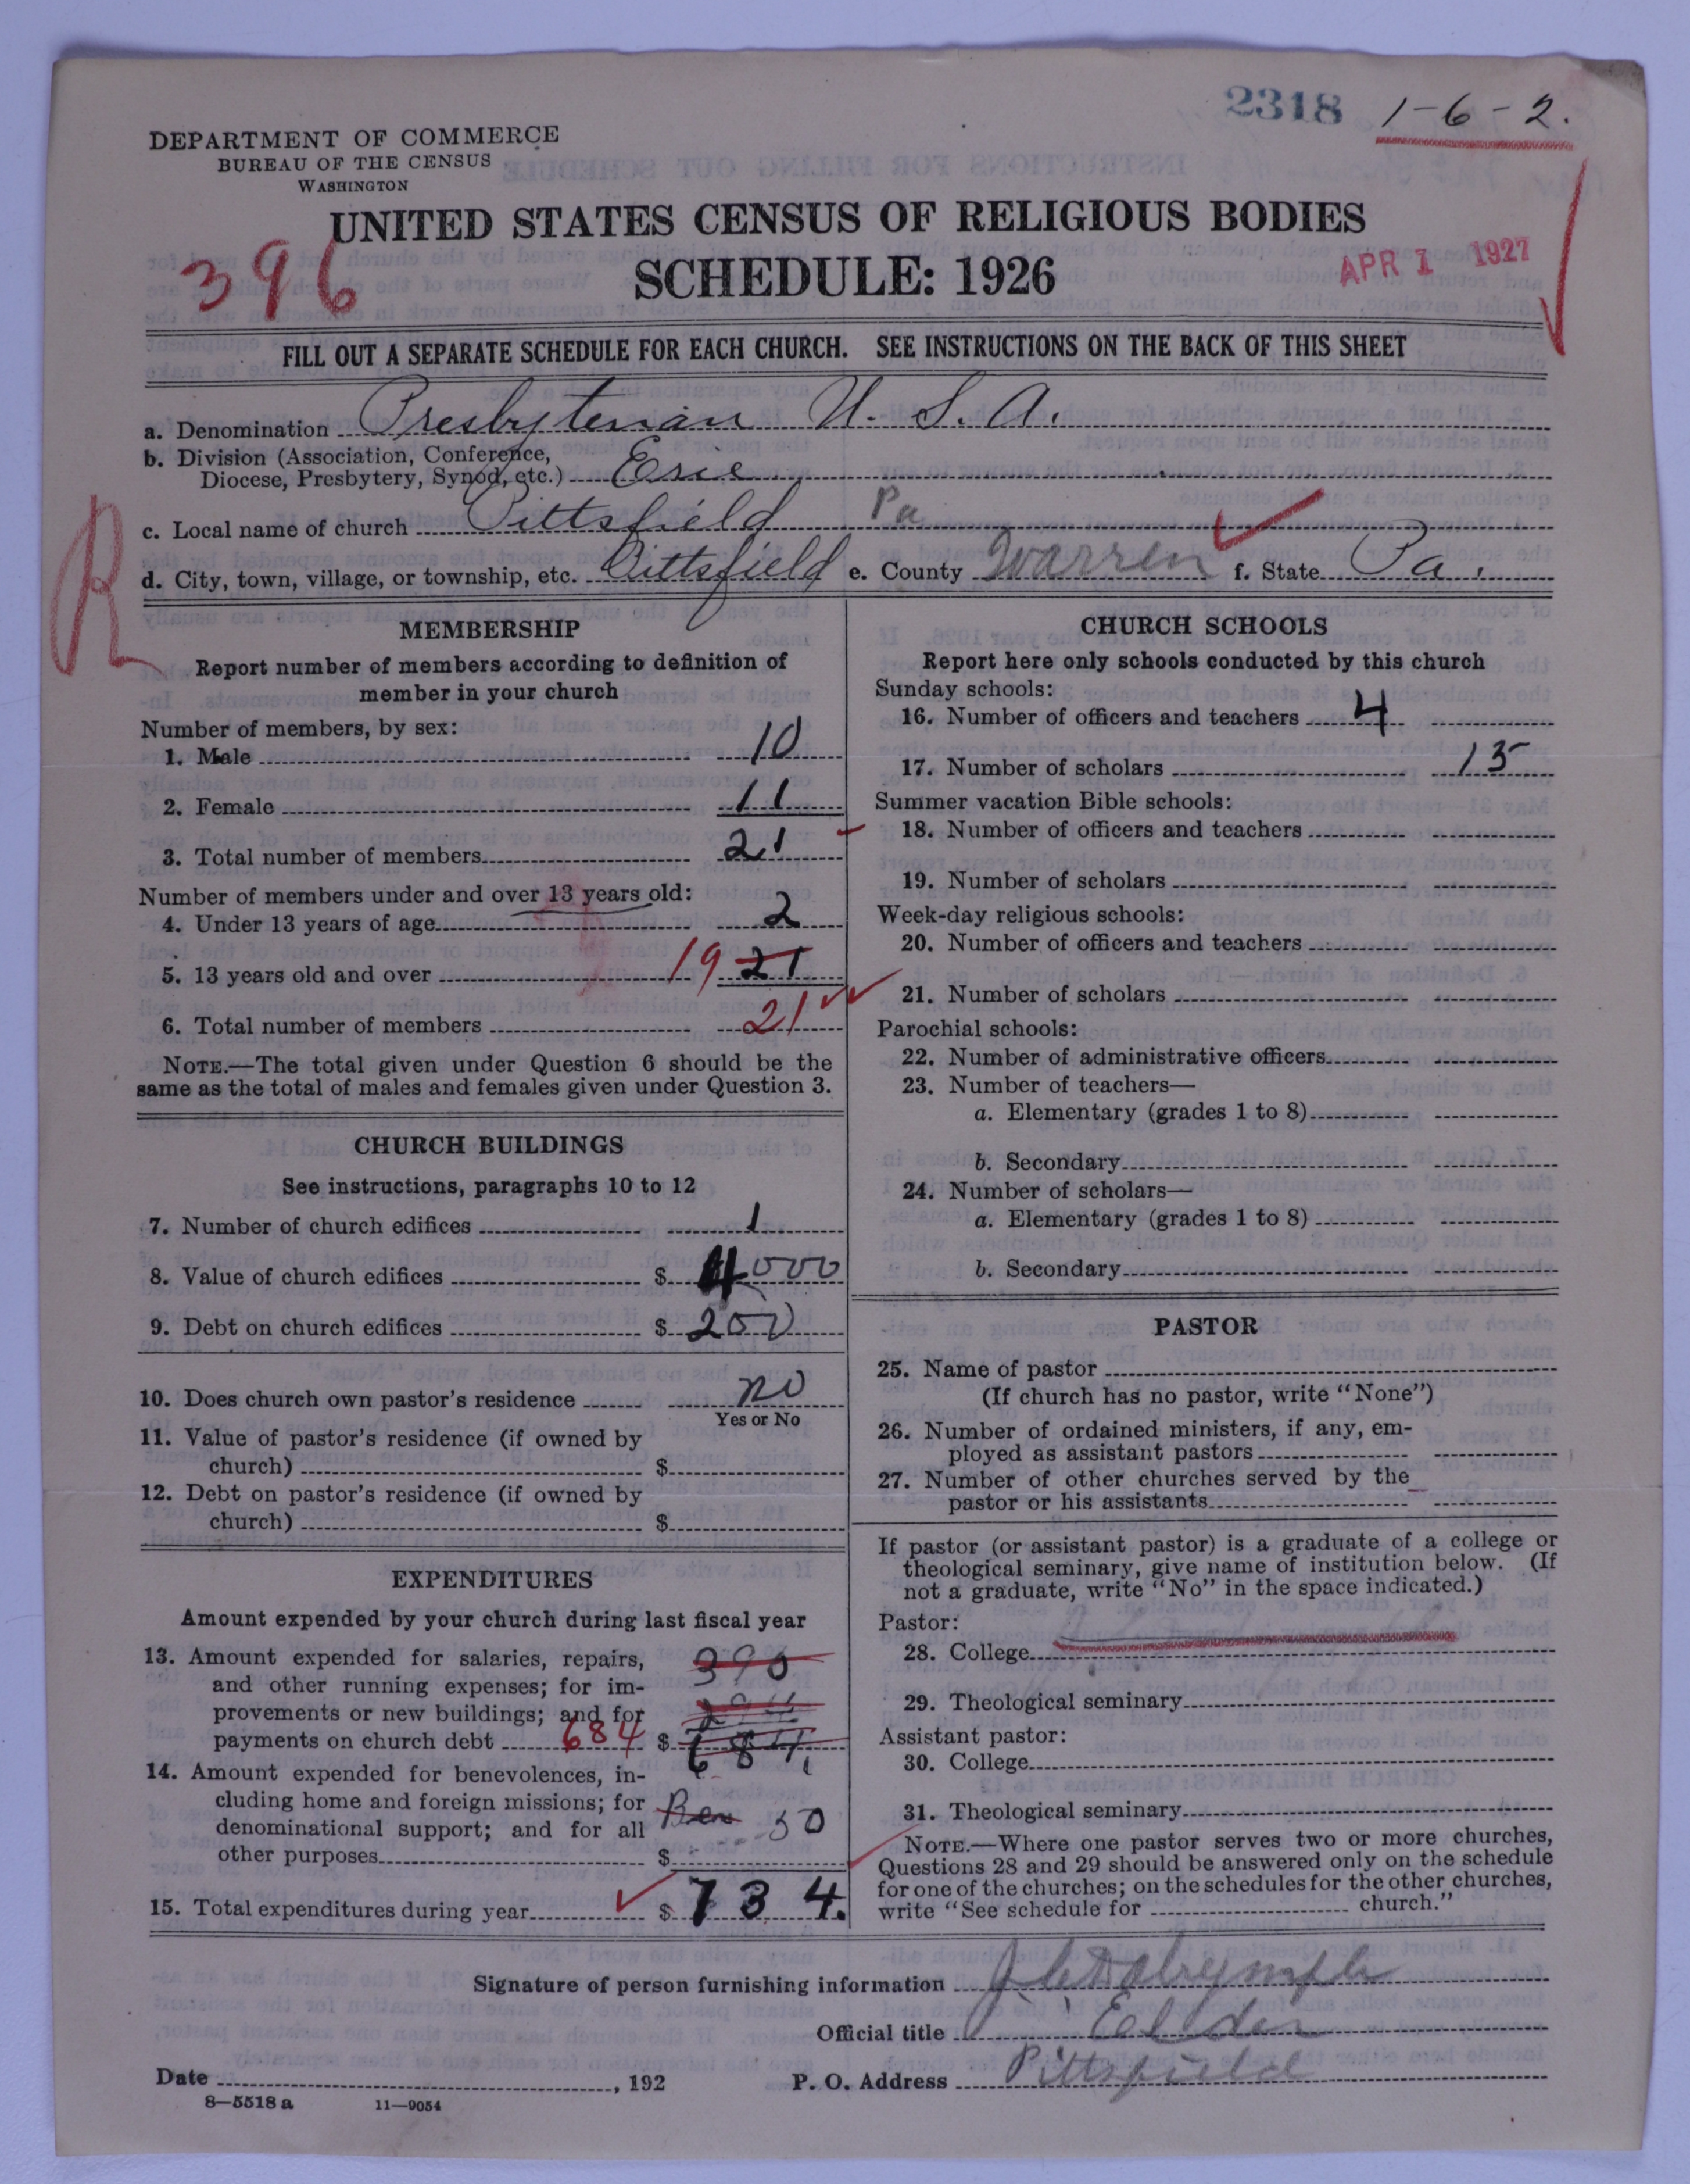 2318 1-6-2.
DEPARTMENT OF COMMERCE
BUREAU OF THE CENSUS
WASHINGTON
UNITED STATES CENSUS OF RELIGIOUS BODIES
396 SCHEDULE: 1926 APR 1 1927
FILL OUT A SEPARATE SCHEDULE FOR EACH CHURCH. SEE INSTRUCTIONS ON THE BACK OF THIS SHEET
a. Denomination Presbyterian U. S. A.
b. Division (Association, Conference,
Diocese, Presbytery, Synod, etc.) Erie
R
c. Local name of church Pittsfield Pa
d. City, town, village, or township, etc. Pittsfield e. County Warren f. State Pa.
MEMBERSHIP
Report number of members according to definition of
member in your church
Number of members, by sex:
1. Male 10
2. Female 11
3. Total number of members 21
Number of members under and over 13 years old:
4. Under 13 years of age 2
5. 13 years old and over 19 21
6. Total number of members 21
NOTE.—The total given under Question 6 should be the
same as the total of males and females given under Question 3.
CHURCH BUILDINGS
See instructions, paragraphs 10 to 12
7. Number of church edifices 1
8. Value of church edifices $ 4000
9. Debt on church edifices $ 200
10. Does church own pastor's residence no
Yes or No
11. Value of pastor's residence (if owned by
church) $
12. Debt on pastor's residence (if owned by
church) $
EXPENDITURES
Amount expended by your church during last fiscal year
13. Amount expended for salaries, repairs, 390
and other running expenses; for im-
provements or new buildings; and for 294
payments on church debt 684 $ 684
14. Amount expended for benevolences, in-
cluding home and foreign missions; for Ben 50
denominational support; and for all
other purposes $
15. Total expenditures during year $ 734.
CHURCH SCHOOLS
Report here only schools conducted by this church
Sunday schools:
16. Number of officers and teachers 4
17. Number of scholars 15
Summer vacation Bible schools:
18. Number of officers and teachers
19. Number of scholars
Week-day religious schools:
20. Number of officers and teachers
21. Number of scholars
Parochial schools:
22. Number of administrative officers
23. Number of teachers—
a. Elementary (grades 1 to 8)
b. Secondary
24. Number of scholars—
a. Elementary (grades 1 to 8)
b. Secondary
PASTOR
25. Name of pastor
(If church has no pastor, write "None")
26. Number of ordained ministers, if any, em-
ployed as assistant pastors
27. Number of other churches served by the
pastor or his assistants
If pastor (or assistant pastor) is a graduate of a college or
theological seminary, give name of institution below. (If
not a graduate, write "No" in the space indicated.)
Pastor:
28. College
29. Theological seminary
Assistant pastor:
30. College
31. Theological seminary
NOTE.—Where one pastor serves two or more churches,
Questions 28 and 29 should be answered only on the schedule
for one of the churches; on the schedules for the other churches,
write "See schedule for church."
Signature of person furnishing information Dalrymple
Official title Elder
Date , 192 P. O. Address Pittsfield
8—5518 a 11—9054